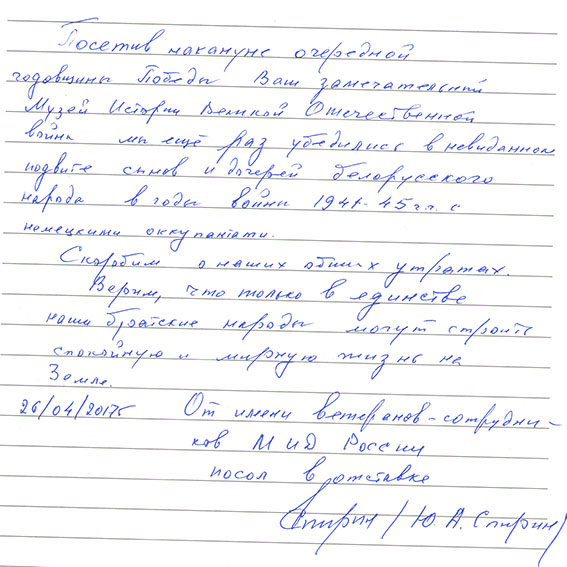 Посетив накануне очередной
годовщины Победы Ваш замечательный
Музей Истории Великой Отечественной
войны мы ещё раз убедились в невиданном
подвиге сынов и дочерей белорусского
народа в годы войны 1941-45 г.г. с
немецкими оккупантами.
Скорбим о наших общих утратах.
Верим, что только в единстве
наши братские народы могут строить
спокойную и мирную жизнь на
Земле.
26/04/2017г От имени ветеранов-сотрудни-
ков МИД России
посол в отставке
Спирин / Ю.А. Спирин /